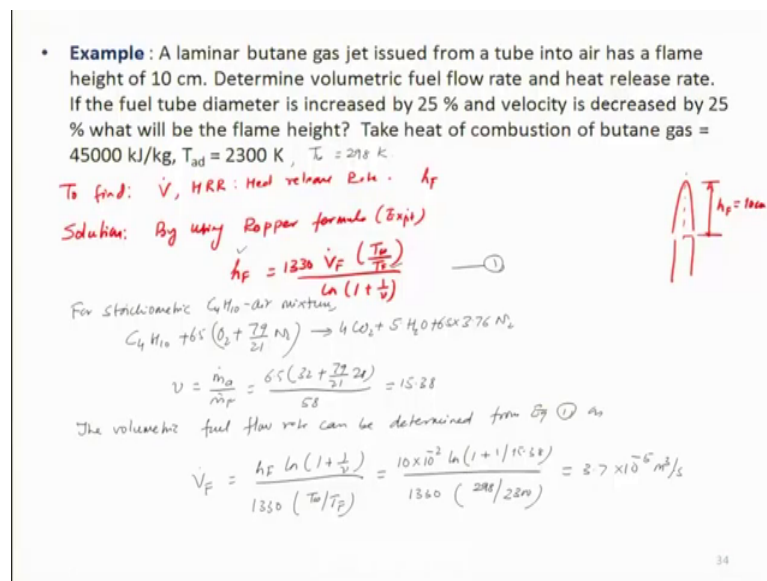 • Example : A laminar butane gas jet issued from a tube into air has a flame
height of 10 cm. Determine volumetric fuel flow rate and heat release rate.
If the fuel tube diameter is increased by 25 % and velocity is decreased by 25
% what will be the flame height? Take heat of combustion of butane gas =
45000 kJ/kg, Tad = 2300 K , T∞ = 298 K
To find: V̇, HRR : Heat release Rate . hF
Solution: By using Ropper formula (Expt)
hF = 1330 V̇F (T∞/TF) / ln (1 + 1/ν) —— ①
hF = 10cm
For stoichiometric C4H10-air mixture,
C4H10 + 6.5 (O2 + 79/21 N2) → 4CO2 + 5H2O + 6.5x3.76 N2
ν = ṁa/ṁF = 6.5(32 + 79/21 28) / 58 = 15.38
The volumetric fuel flow rate can be determined from Eq ① as
V̇F = hF ln (1 + 1/ν) / 1330 (T∞/TF) = 10x10⁻² ln (1 + 1/15.38) / 1360 (298/2300) = 3.7 x10⁻⁵ m³/s
34